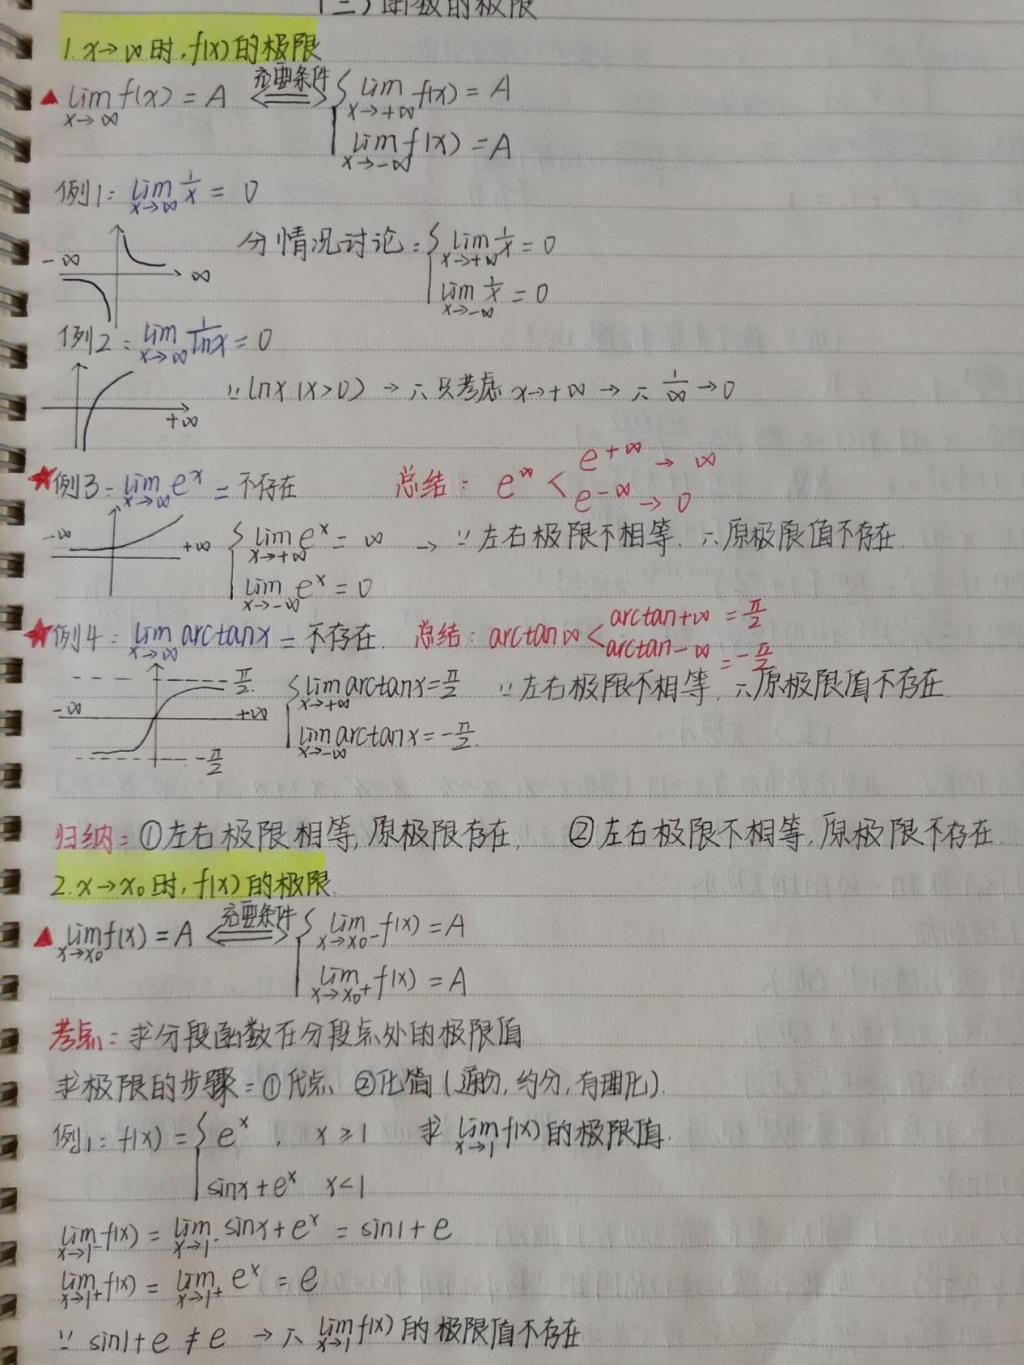 (三)函数的极限
1. x→∞时,f(x)的极限
▲ lim x→∞ f(x) = A ⟺ 充要条件 { lim x→+∞ f(x) = A
lim x→-∞ f(x) = A
例1: lim x→∞ 1/x = 0
分情况讨论: { lim x→+∞ 1/x = 0
-∞ ∞
lim x→-∞ 1/x = 0
例2: lim x→∞ 1/lnx = 0
∵ lnx (x>0) → ∴只考虑 x→+∞ → ∴ 1/∞ → 0
+∞
★例3: lim x→∞ e^x = 不存在 总结: e^∞ < e^+∞ → ∞
e^-∞ → 0
-∞ +∞ { lim x→+∞ e^x = ∞ → ∵左右极限不相等.∴原极限值不存在
lim x→-∞ e^x = 0
★例4: lim x→∞ arctanx = 不存在. 总结: arctan∞ < arctan+∞ = π/2
arctan-∞ = -π/2
π/2 { lim x→+∞ arctanx = π/2 ∵左右极限不相等,∴原极限值不存在
-∞ +∞
lim x→-∞ arctanx = -π/2.
-π/2
归纳: ①左右极限相等,原极限存在. ②左右极限不相等,原极限不存在.
2. x→x₀时,f(x)的极限.
▲ lim x→x₀ f(x) = A ⟺ 充要条件 { lim x→x₀- f(x) = A
lim x→x₀+ f(x) = A
考点: 求分段函数在分段点处的极限值
求极限的步骤: ①代点、②化简(通分,约分,有理化).
例1: f(x) = { e^x , x≥1 求 lim x→1 f(x)的极限值.
sinx+e^x x<1
lim x→1- f(x) = lim x→1- sinx+e^x = sin1+e
lim x→1+ f(x) = lim x→1+ e^x = e
∵ sin1+e ≠ e → ∴ lim x→1 f(x)的极限值不存在